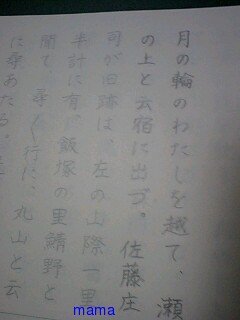 月の輪のわたしを越て、瀬
の上と云宿に出づ。佐藤庄
司が旧跡は、左の山際一里
半計に有。飯塚の里鯖野と
聞て、尋〱行に、丸山と云
に尋あたる。
mama